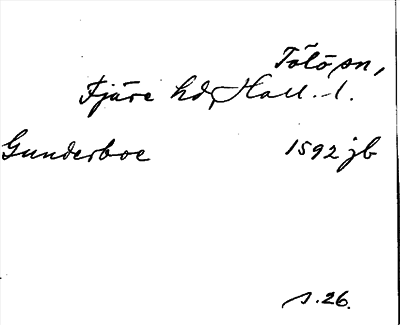 Tölö sn,
Fjäre hd, Hall. l.
Gunderboe 1592 jb
s. 26.